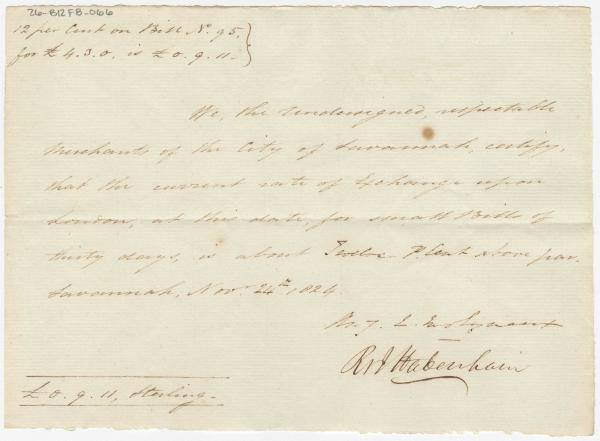 26-B12F8-066
12 per Cent on Bill No. 95,
for £ 4.3.0, is £ 0.9.11.
We, the Undersigned, respectable
Merchants of the City of Savannah, certify,
that the current rate of Exchange upon
London, at this date, for small Bills of
thirty days, is about Twelve P Cent above par.
Savannah, Nov. 24th, 1824.
Habersham
£ 0.9.11, Sterling.